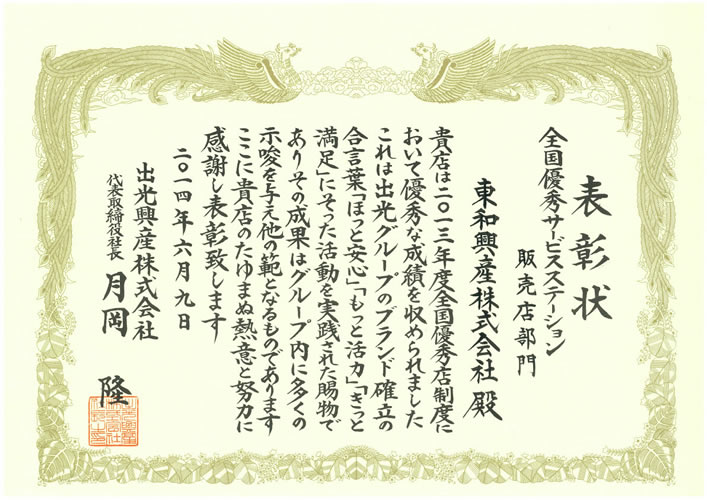 表彰状
全国優秀サービスステーション
販売店部門
東和興産株式会社 殿
貴店は二〇一三年度全国優秀店制度に
おいて優秀な成績を収められました
これは出光グループのブランド確立の
合言葉「ほっと安心」「もっと活力」「きっと
満足」にそった活動を実践された賜物で
ありその成果はグループ内に多くの
示唆を与え他の範となるものであります
ここに貴店のたゆまぬ熱意と努力に
感謝し表彰致します
二〇一四年六月九日
出光興産株式会社
代表取締役社長 月岡 隆